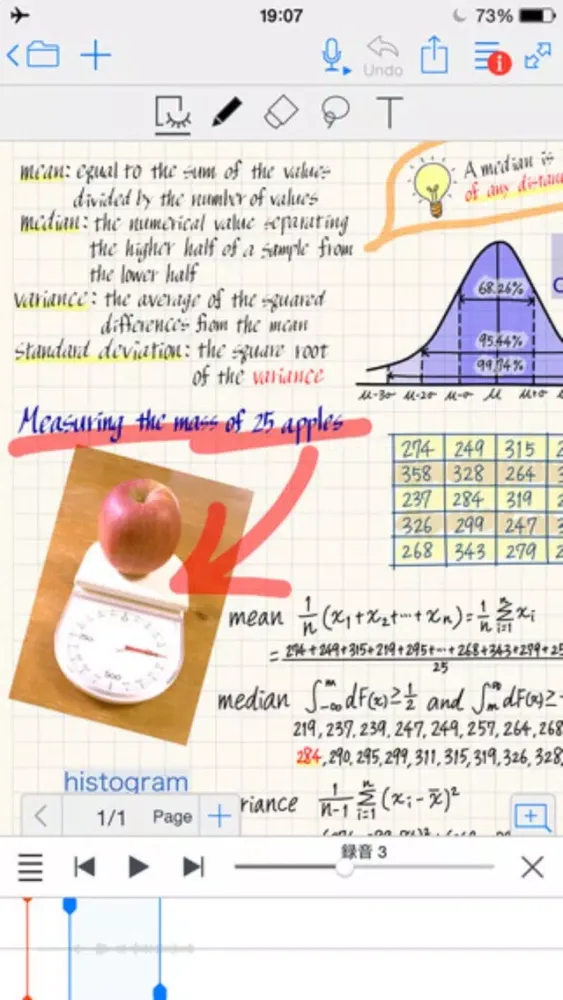 19:07
73%
Undo
T
mean: equal to the sum of the values
divided by the number of values
median: the numerical value separating
the higher half of a sample from
the lower half
variance: the average of the squared
differences from the mean
standard deviation: the square root
of the variance
A median is
of any
68.26%
95.44%
99.74%
μ-3σ μ-2σ μ-σ μ μ+σ
Measuring the mass of 25 apples
274 249 315
358 328 264
237 284 319
326 299 247
268 343 279
mean 1/n (x₁+x₂+…+xₙ)=1/n Σⁿᵢ₌₁ xᵢ
=274+249+315+219+295+…+268+343+279+25
25
median ∫ᵐ₋∞ dF(x)≥1/2 and ∫^∞ₘ dF(x)≥
219, 237, 239, 247, 249, 257, 264, 268
284, 290, 295, 299, 311, 315, 319, 326, 328,
histogram
riance 1/n-1 Σⁿᵢ₌₁ (xᵢ-x̄)²
1/1 Page
録音 3